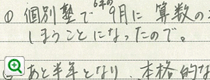 ① 個別塾で 6年の 9月に 算数の
しまうことになったので。
あと半年となり、本格的な